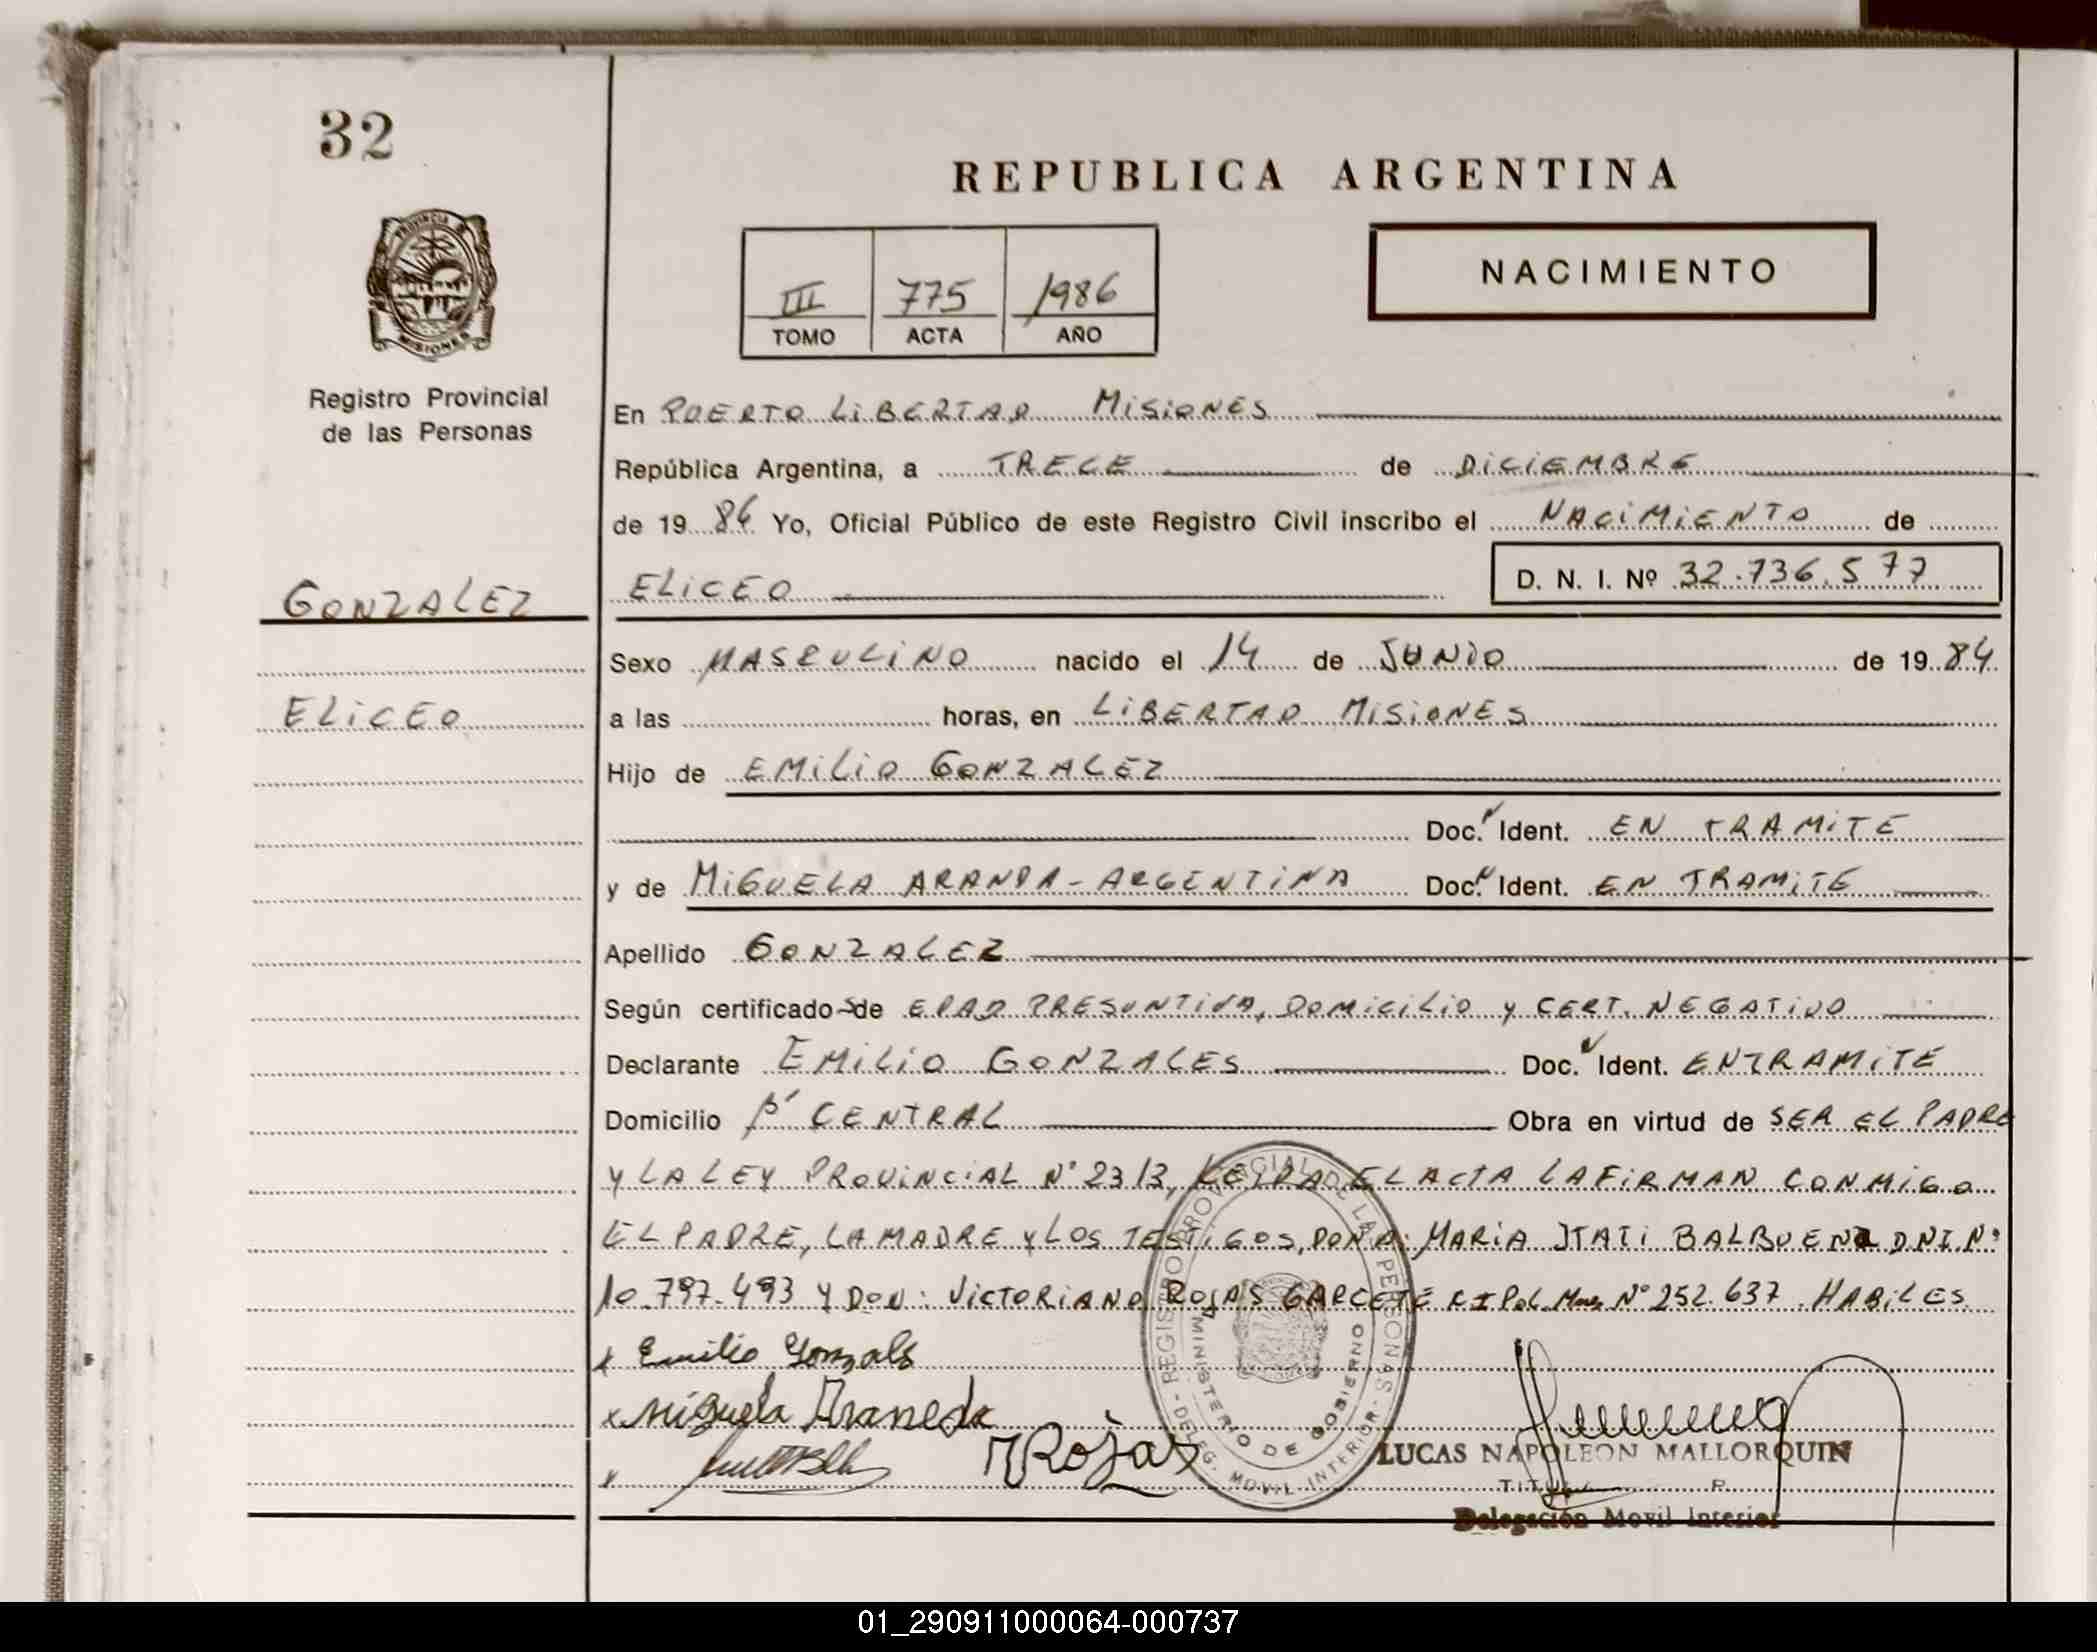 32
REPUBLICA ARGENTINA
PROVINCIA DE
MISIONES
NACIMIENTO
III 775 1986
TOMO ACTA AÑO
Registro Provincial
de las Personas
En PUERTO LIBERTAD MISIONES
República Argentina, a TRECE de DICIEMBRE
de 19 86 Yo, Oficial Público de este Registro Civil inscribo el NACIMIENTO de
GONZALEZ
ELICEO D. N. I. Nº 32.736.577
Sexo MASCULINO nacido el 14 de JUNIO de 19 84
ELICEO
a las horas, en LIBERTAD MISIONES
Hijo de EMILIO GONZALEZ
Doc. Ident. EN TRAMITE
y de MIGUELA ARANDA - ARGENTINA Doc. Ident. EN TRAMITE
Apellido GONZALEZ
Según certificado s de EDAD PRESUNTIVA, DOMICILIO Y CERT. NEGATIVO
Declarante EMILIO GONZALES Doc. Ident. EN TRAMITE
Domicilio Bº CENTRAL Obra en virtud de SER EL PADRE
Y LA LEY PROVINCIAL Nº 2313, LEIDA EL ACTA LA FIRMAN CONMIGO
EL PADRE, LA MADRE Y LOS TESTIGOS, DOÑA: MARIA ITATI BALBUENA DNI Nº
10.797.493 Y DON: VICTORIANO ROJAS GARCETE C I Pol. Mnes Nº 252.637. HABILES
x Emilio Gonzals
x Miguela Araneda
x
Rojas
REGISTRO PROVINCIAL DE LAS PERSONAS - DELEG. MOVIL INTERIOR -
MINISTERIO DE GOBIERNO
LUCAS NAPOLEON MALLORQUIN
Delegación Movil Interior
01_290911000064-000737